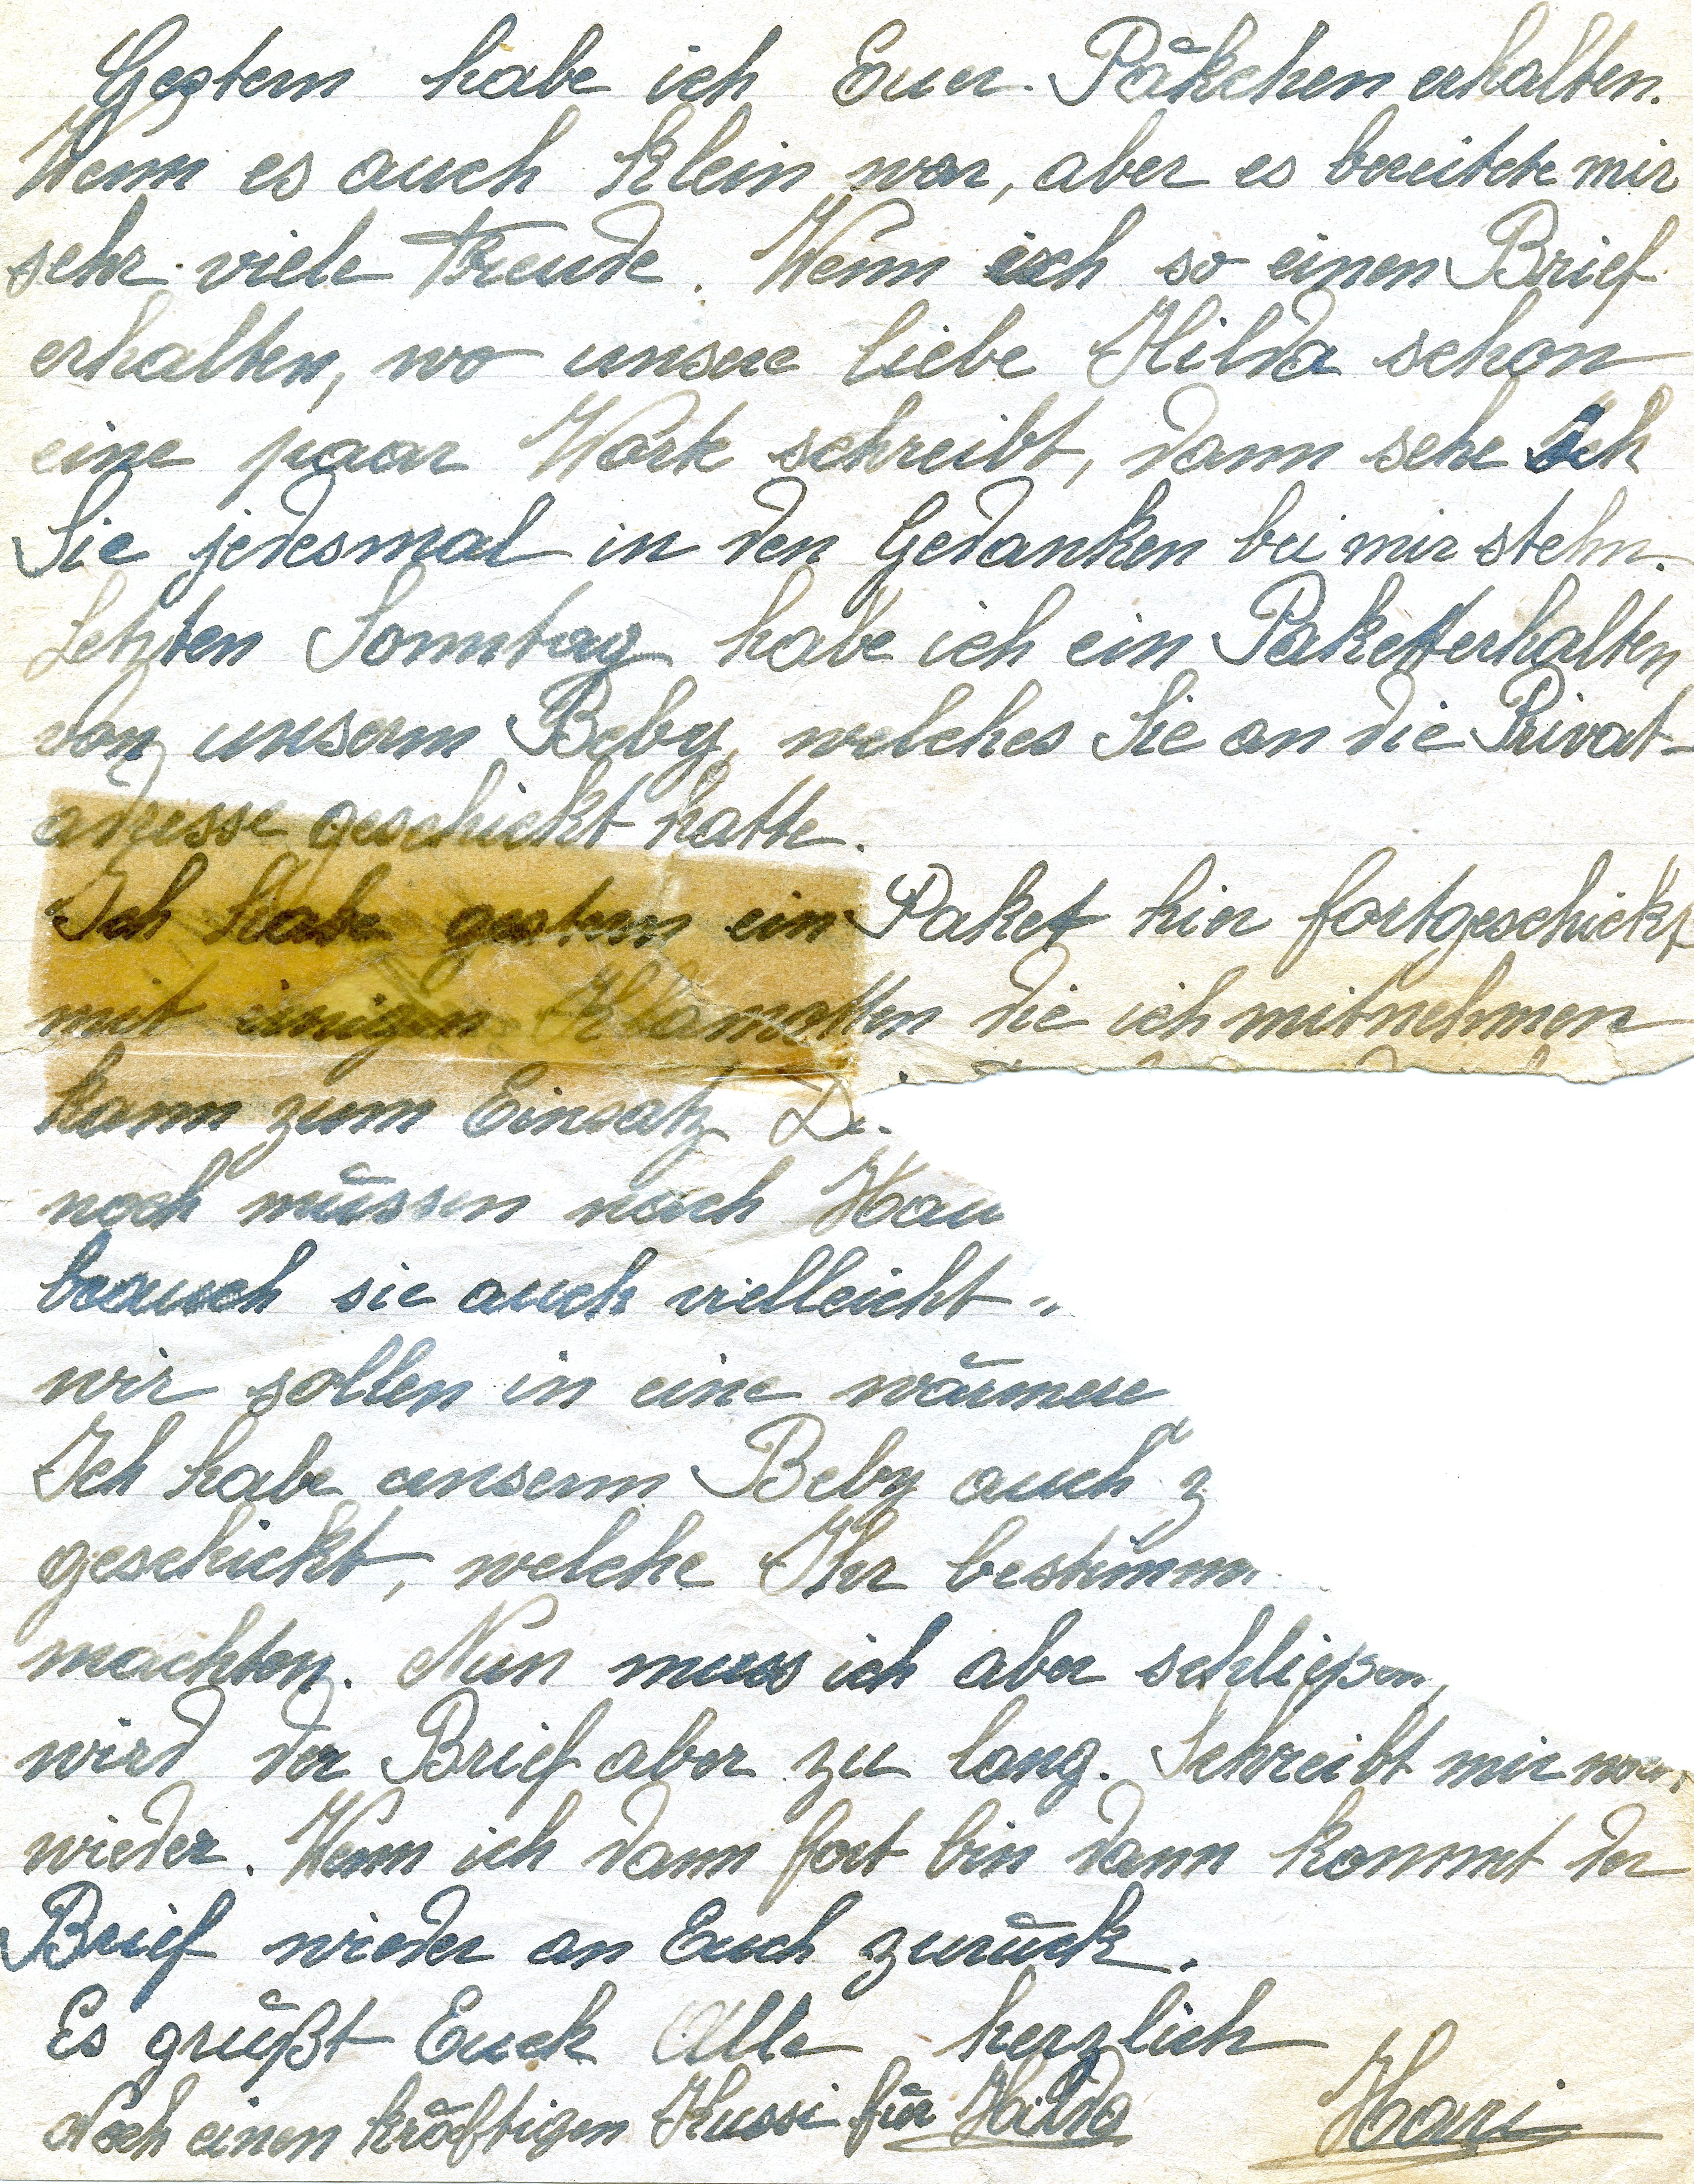 Gestern habe ich Euer Päkchen erhalten.
Wenn es auch klein war, aber es bereitete mir
sehr viele Freude. Wenn ich so einen Brief
erhalten, wo unsere liebe Hilda schon
eine paar Worte schreibt, dann sehe ich
Sie jedesmal in den Gedanken bei mir stehn.
Letzten Sonntag habe ich ein Paket erhalten
von unserm Beby, welches Sie an die Privat-
adresse geschickt hatte.
Ich habe gestern ein Paket hier fortgeschickt
mit einigen Klamotten die ich mitnehmen
kann zum Einsatz
noch müssen nach Hau
brauch sie auch vielleicht
wir sollen in eine wärmere
Ich habe unserm Beby auch z
geschickt, welche Ihr bestimm
machten. Nun muss ich aber schließen,
wird der Brief aber zu lang. Schreibt mir
wieder. Wenn ich dann fort bin dann kommt der
Brief wieder an Euch zurück.
Es grüßt Euch Alle herzlich
Noch einen kräftigen Kussi für Hilda Hari